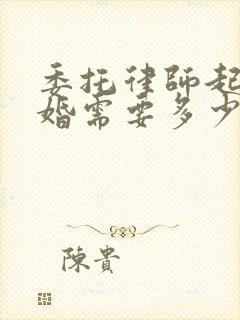 委托律師起
婚需要多少
陳貴